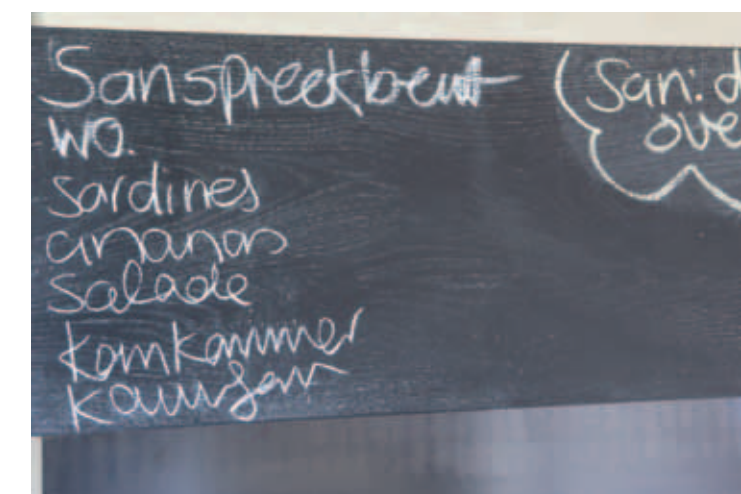 San spreekbeurt
wo.
sardines
ananas
salade
komkommer
San: d
ove